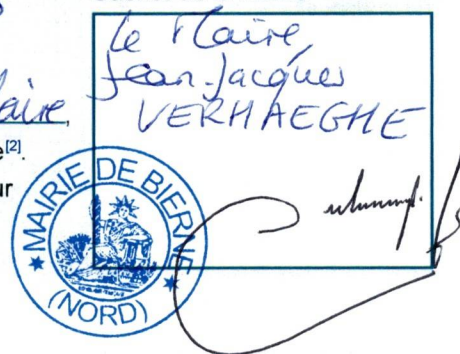 Le Maire,
Jean-Jacques
VERHAEGHE
aire,
e[2].
ur
MAIRIE DE BIERNE
(NORD)